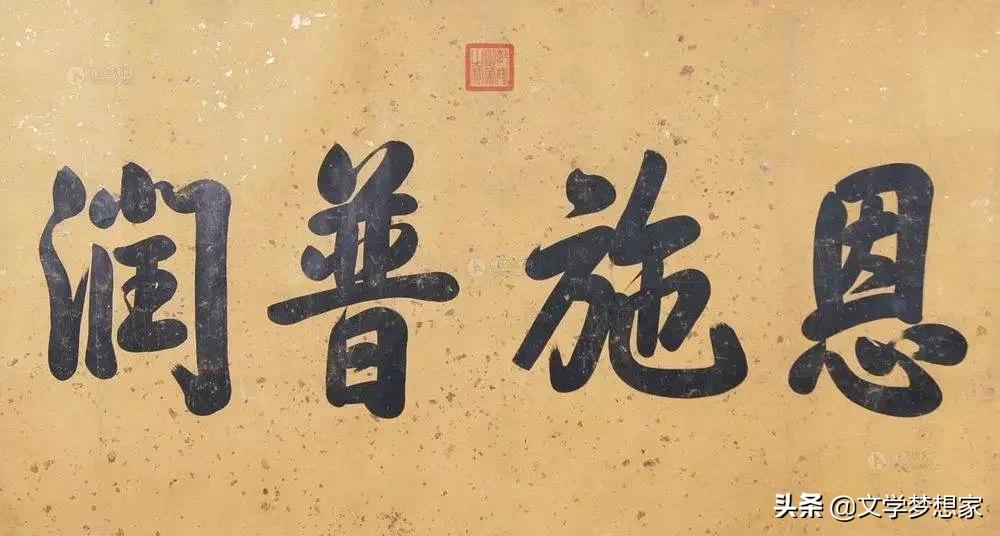 恩施普润
头条 @文学梦想家